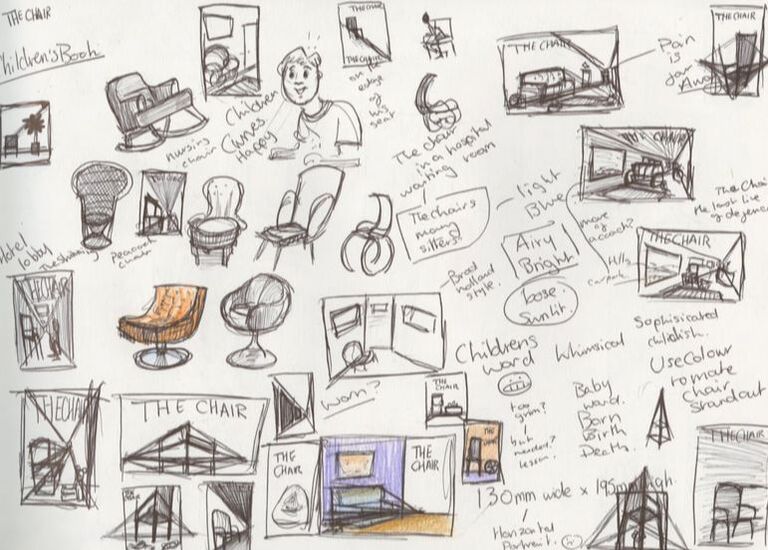 THE CHAIR
Children's Book
THE CHAIR
THE CHAIR
on
edge
of
his
seat
Children
Comes
Happy
nursing
chair
The chair
in a hospital
waiting room
THE CHAIR
Pain
is
far
Away
THE CHAIR
THE CHAIR
The Chair
the last line
of defence
light
Blue
The Chairs
many
sitters
Airy
Bright
loose
Sunlit.
more
of
a coach?
Hills
carpark
THE CHAIR
Hotel
lobby
Peacock
chair
THE CHAIR
Brad
holland
style.
Sophisticated
childish.
Childrens
ward
Whimsical
Use Colour
to make
chair
standout
Worn?
THE
CHAIR
too
grim?
but
needed?
lesson.
Baby
ward.
Born
Birth
Death.
THE CHAIR
THE CHAIR
THE
CHAIR
THE
CHAIR
THE
CHAIR
130mm wide x 195mm high.
Horizontal
Portrait.
THE CHAIR